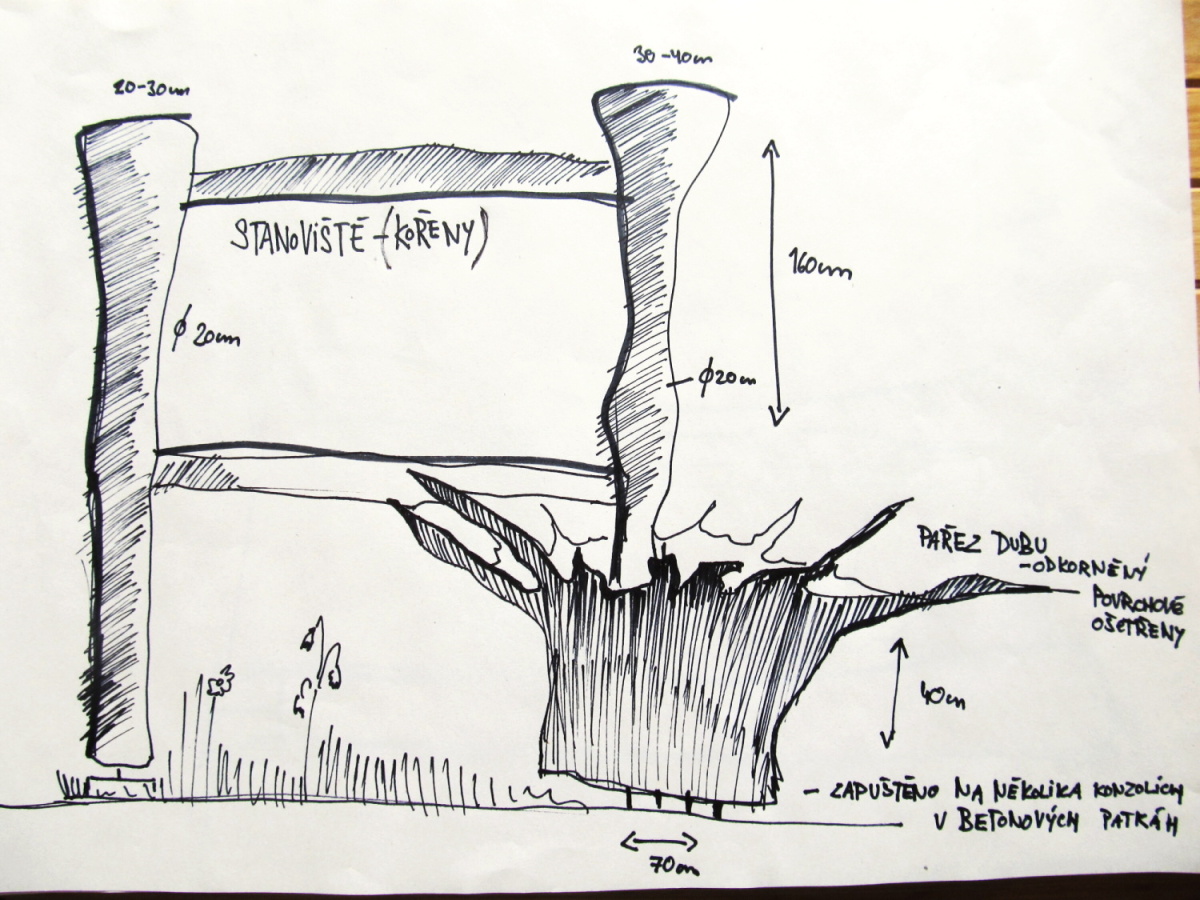 20-30cm
30-40cm
STANOVIŠTĚ-(KOŘENY)
160cm
ϕ 20cm
ϕ20cm
PAŘEZ DUBU
-ODKORNĚNÝ
POVRCHOVĚ
OŠETŘENY
40cm
- ZAPUŠTĚNO NA NĚKOLIKA KONZOLÍCH
V BETONOVÝCH PATKÁH
70cm